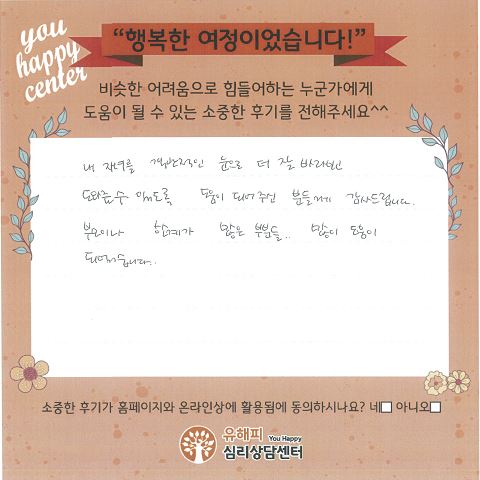 you
happy
center
“행복한 여정이었습니다!”
비슷한 어려움으로 힘들어하는 누군가에게
도움이 될 수 있는 소중한 후기를 전해주세요^^
내 자녀를 객관적인 눈으로 더 잘 바라보고
도와줄수 있도록 도움이 되어주신 분들께 감사드립니다.
부모이나 한계가 많은 부분들.. 많이 도움이
되었습니다..
소중한 후기가 홈페이지와 온라인상에 활용됨에 동의하시나요? 네□ 아니오□
유해피 You Happy
심리상담센터